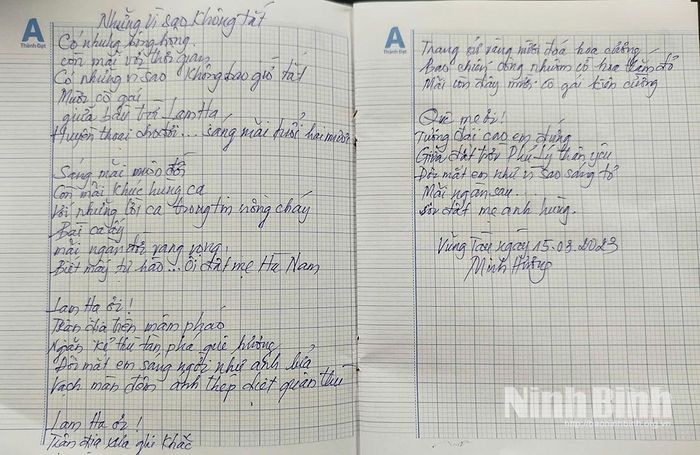 A
Thành Đạt
Những vì sao không tắt
Có những bông hồng
còn mãi với thời gian
Có những vì sao không bao giờ tắt
Mười cô gái
giữa bầu trời Lam Hạ
Huyền thoại cho đời... sáng mãi tuổi hai mươi
Sáng mãi muôn đời
Còn mãi khúc hùng ca
Với những lời ca trong tim nồng cháy
Bài ca ấy
mãi ngàn đời vang vọng,
Biết mấy tự hào... Ôi đất mẹ Hà Nam
Lam Hạ ơi!
Trận địa trên mâm pháo
Ngăn kẻ thù tàn phá quê hương
Đôi mắt em sáng ngời như ánh lửa
Vạch màn đêm anh thép diệt quân thù
Lam Hạ ơi!
Trận địa xưa ghi khắc
A
Thành Đạt
Trang sử vàng mười đoá hoa cương
Bao chiến công nhuộm cờ hoa thắm đỏ
Mãi còn đây mười cô gái kiên cường
Quê mẹ ơi!
Tượng đài cao em đứng
Giữa đất trời Phủ Lý thân yêu
Đôi mắt em như vì sao sáng tỏ
Mãi ngàn sau....
đất mẹ anh hùng.
Vũng Tàu ngày 15.03.2023
Minh Hương
Ninh Bình
http://baoninhbinh.org.vn